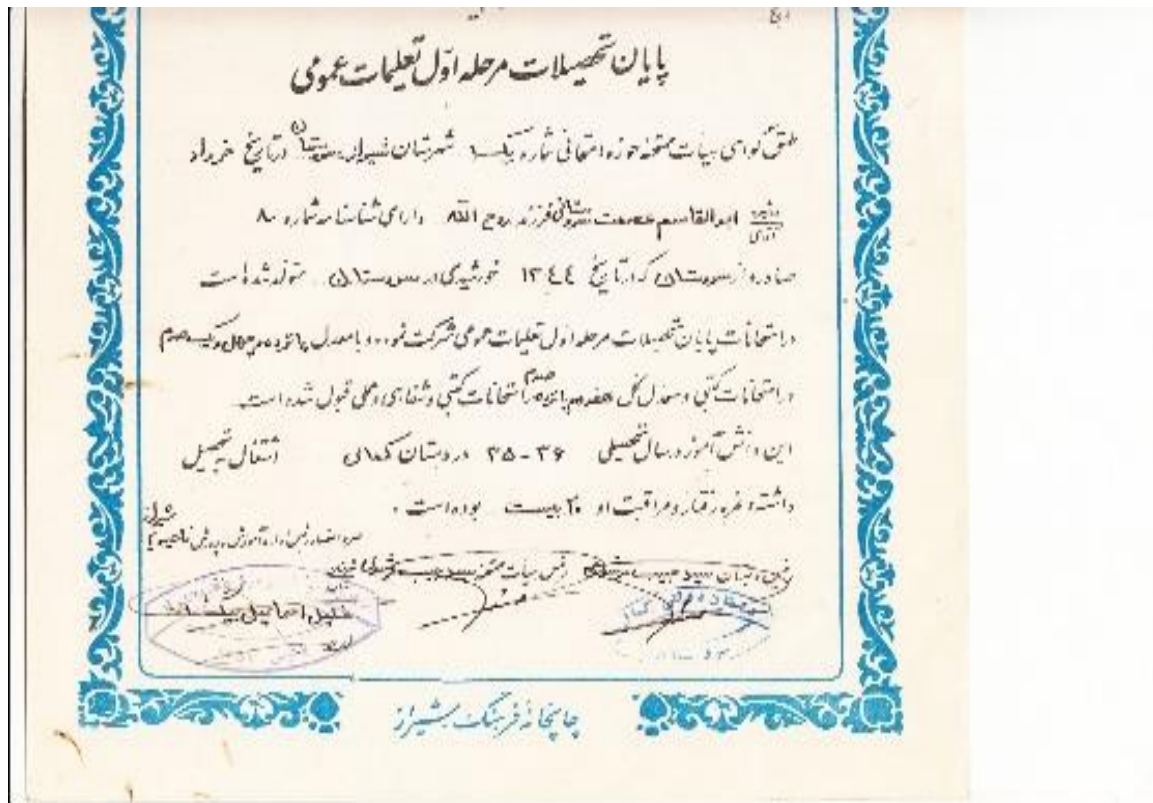 پایان تحصیلات مرحله اول تعلیمات عمومی
طبق گواهی هیأت ممتحنه حوزه امتحانی شماره یک شهرستان شیراز سروستان در تاریخ خرداد
ابوالقاسم عصمت سروستانی فرزند روح الله دارای شناسنامه شماره ۸۰
صادره از سروستان که در تاریخ ۱۳۴۴ خورشیدی در سروستان متولد شده است
در امتحانات پایان تحصیلات مرحله اول تعلیمات عمومی شرکت نموده و با معدل
در امتحانات کتبی و معدل کل امتحانات کتبی و شفاهی و عملی قبول شده است
این دانش آموز در سال تحصیلی ۳۶-۳۵ در دبستان اشتغال به تحصیل
داشته و نمره رفتار و مراقبت او ۲۰ بیست بوده است .
مهر و امضاء رئیس اداره آموزش و پرورش ناحیه شیراز
رئیس دبستان سید رئیس هیأت ممتحنه سید
چاپخانه فرهنگ شیراز